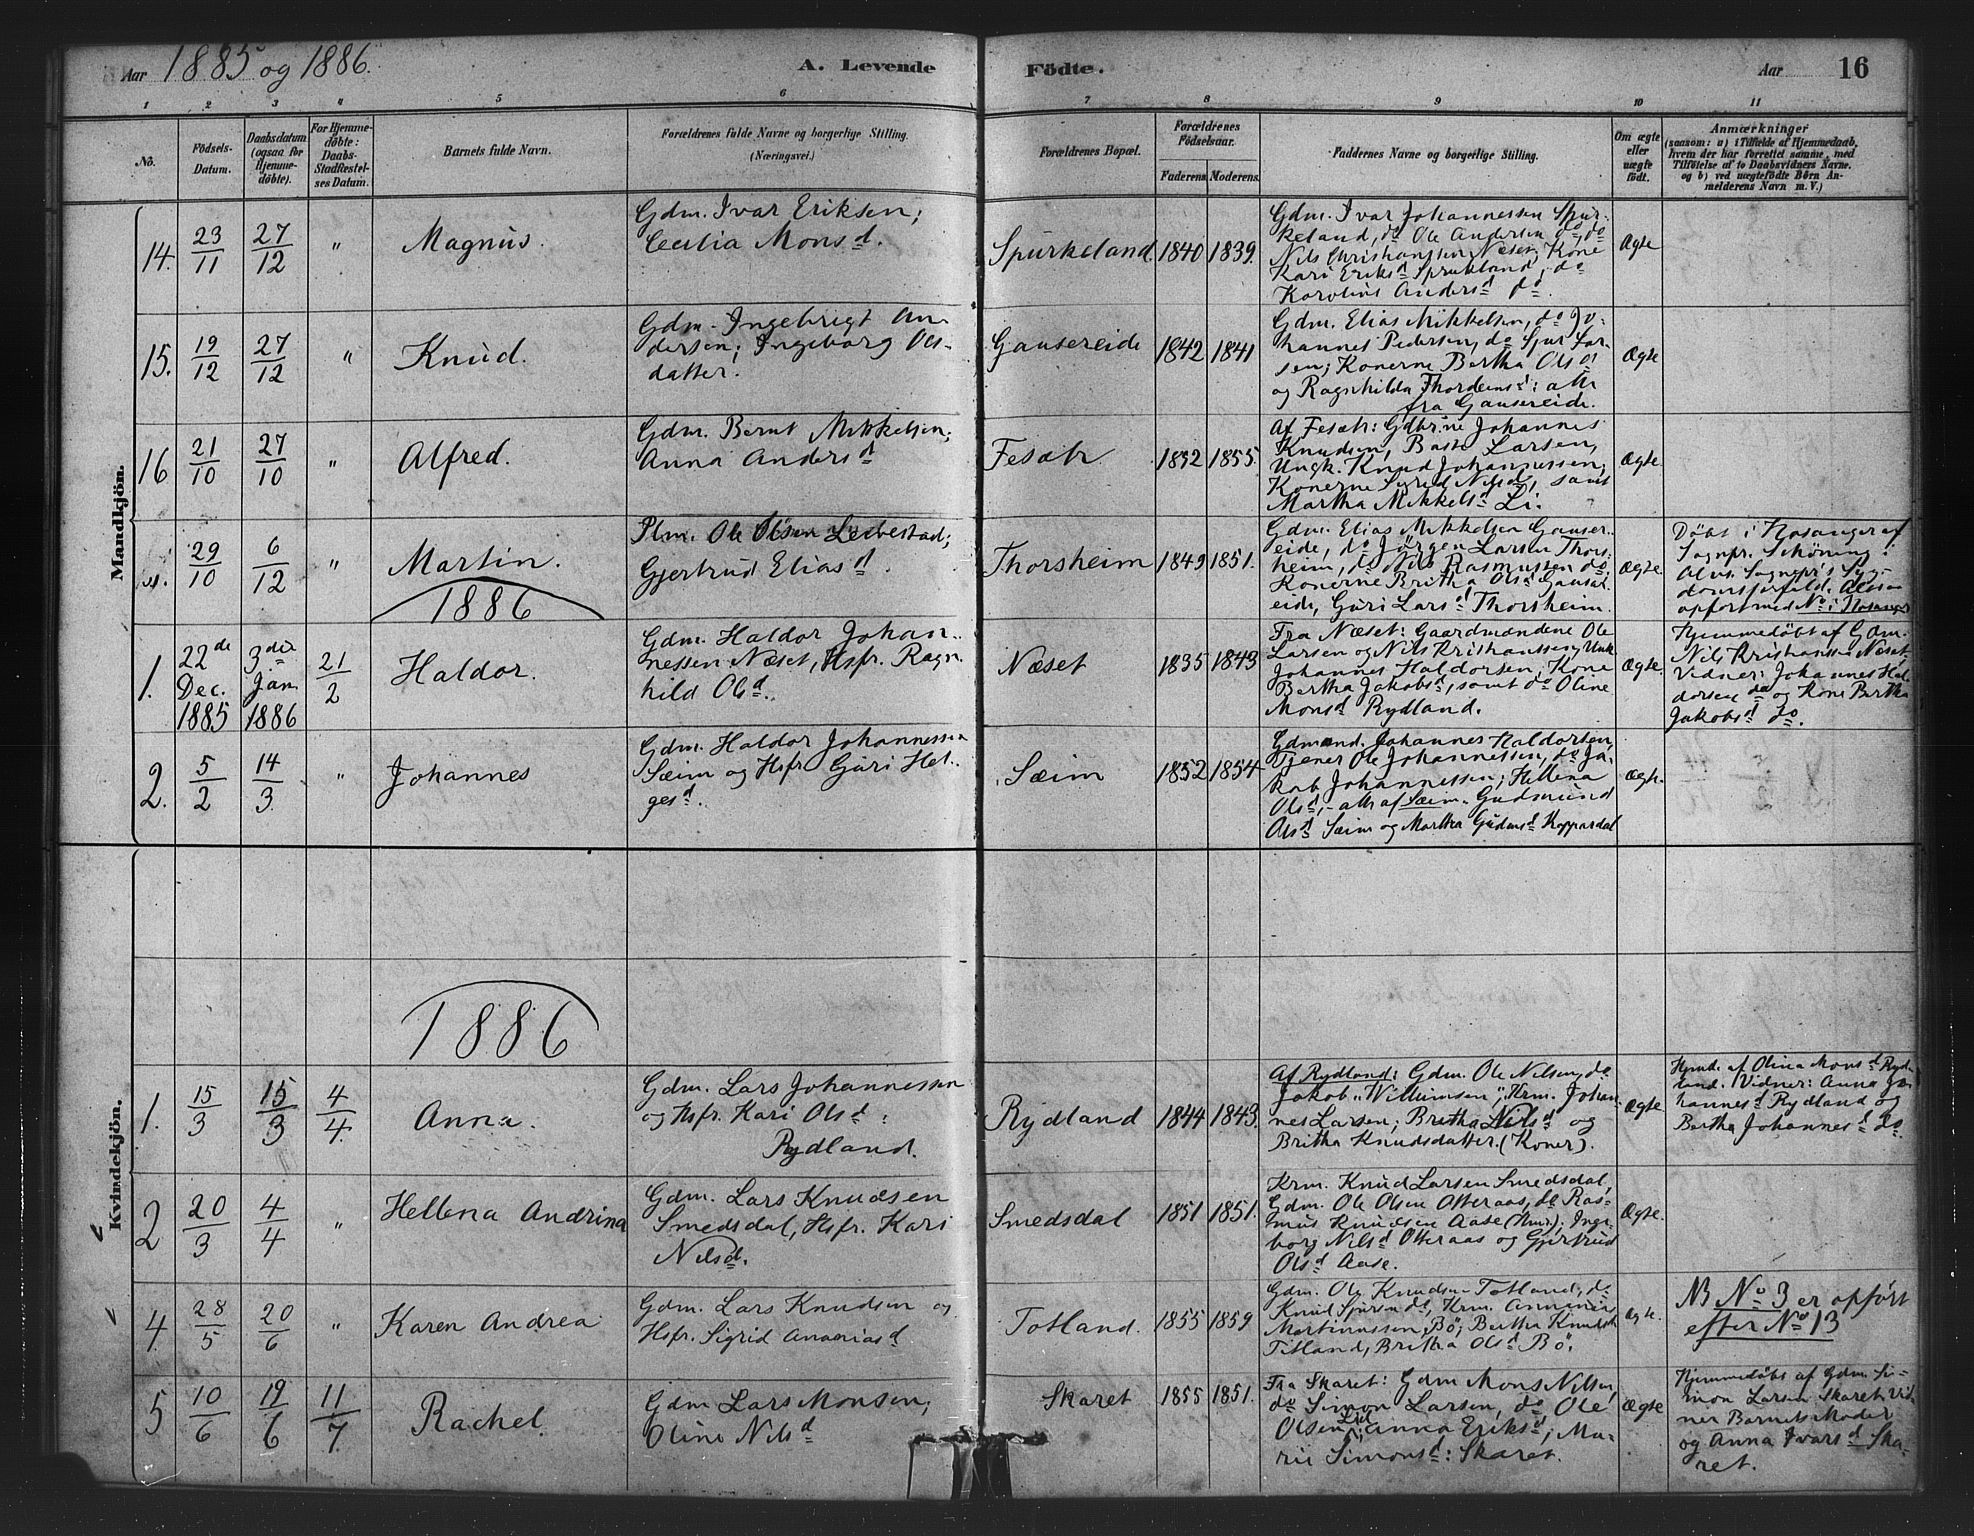 Aar 1885 og 1886. A. Levende Födte. Aar 16
1 2 3 4 5 6 7 8 9 10 11
No.
Födsels-
Datum.
Daabsdatum
(ogsaa for
Hjemme-
döbte).
For Hjemme-
döbte:
Daabs-
Stadfæstel-
ses Datum.
Barnets fulde Navn.
Forældrenes fulde Navne og borgerlige Stilling.
(Næringsvei.)
Forældrenes Bopæl.
Forældrenes
Födselsaar.
Faderens. Moderens.
Faddernes Navne og borgerlige Stilling.
Om ægte
eller
uægte
födt.
Anmærkninger
(saasom: a) i Tilfælde af Hjemmedaab,
hvem der har forrettet samme, med
Tilföielse af to Daabsvidners Navne.
og b) ved uægtefödte Börn An-
melderens Navn m. V.)
Mandkjön.
14. 23/11 27/12 " Magnus.
Gdm. Ivar Eriksen;
Cecilia Monsd.
Spurkeland. 1840 1839.
Gdm. Ivar Johannessen Spur-
keland, do Ole Andersen do, do
Nils Christianssen Næset; Kone
Kari Eriksd Spurkland, do
Karoline Andersd do.
Ægte
15. 19/12 27/12 " Knud.
Gdm. Ingebrigt An-
dersen; Ingeborg Ols-
datter.
Gausereide 1842 1841
Gdm. Elias Mikkelsen, do Jo-
hannes Pedersen, do Sjur Lar-
sen; Konerne Bertha Olsd
og Ragnhilda Thordensd: alle
fra Gausereide.
Ægte
16 21/10 27/10 " Alfred.
Gdm. Bernt Mikkelsen;
Anna Andersd
Fesæt 1852 1855.
Af Fesæt: Gdbrne Johannes
Knudsen, Larsen,
Ungk. Knud Johannessen;
Konerne Sigrid Nilsd, samt
Martha Mikkelsd Li.
Ægte.
29/10 6/12 " Martin.
Plm. Ole Olsen Leivestad;
Gjertrud Eliasd.
Thorsheim 1849 1851.
Gdm. Elias Mikkelsen Gauser-
eide, do Jörgen Larsen Thors-
heim, do Nils Rasmussen do.
Konerne Britha Olsd Gauser-
eide, Guri Larsd Thorsheim.
Ægte.
Döbt i Hosanger af
Sognpr. Schöning i
Alvs. Sognepr's Syg-
domsforfald. Ogsaa
opfört med No i Hosanger
1886
1. 22de
Dec.
1885
3die
Jan
1886
21/2 Haldor.
Gdm. Haldor Johan-
nessen Næset, Hsfr. Ragn-
hild Olsd.
Næset 1835 1843
Fra Næset: Gaardmændene Ole
Larsen og Nils Kristianssen, Unk.
Johannes Haldorsen; Kone
Bertha Jakobsd, samt do Oline
Monsd Rydland.
Ægte.
Hjemmedöbt af Gdm.
Nils Kristianssen Næset.
Vidner: Johannes Hal-
dorsen do og Kone Bertha
Jakobsd do.
2. 5/2 14/3 " Johannes
Gdm. Haldor Johannessen
Sæim og Hsfr Guri Hel-
gesd.
Sæim 1852 1854
Gdmænd. Johannes Haldorsen,
Tjener Ole Johannessen, do Ja-
kob Johannessen; Hellena
Olsd, - alle af Sæim. Gudmund
Olsd Sæim og Martha Gudmsd Koppardal
Ægte.
Kvindekjön.
1886
1. 15/3 15/3 4/4 Anna.
Gdm. Lars Johannessen
og Hsfr. Kari Olsd:
Rydland.
Rydland 1844 1843.
Af Rydland: Gdm. Ole Nilsen, do
Jakob Willumsen, Krm. Johan-
nes Larsen; Britha Nilsd og
Britha Knudsdatter. (Koner).
Ægte
Hjmd. af Olina Monsd Ryd-
land. Vidner: Anna Jo-
hannesd Rydland og
Bertha Johannesd do.
2 20/3 4/4 " Hellena Andrina
Gdm. Lars Knudsen
Smedsdal, Hsfr. Kari
Nilsd.
Smedsdal 1851 1851.
Krm. Knud Larsen Smedsdal,
Gdm. Ole Olsen Otteraas, do Ras-
mus Knudsen Aase (Kmr); Inge-
borg Nilsd Otteraas og Gjertrud
Olsd Aase.
Ægte.
4. 28/5 20/6 " Karen Andrea
Gdm. Lars Knudsen og
Hsfr. Sigrid Ananiasd
Totland. 1855 1859
Gdm. Ole Knudsen Totland, do
Knud Sjursen do, Krm. Annanias
Martinussen Bö; Bertha Knudsd
Totland, Britha Olsd Bö.
Ægte.
NB No 3 er opfört
efter No 13
5 10/6 19/6 11/7 Rachel.
Gdm Lars Monsen;
Oline Nilsd
Skaret 1855 1851.
Fra Skaret: Gdm Mons Nilsen,
do Simon Larsen, do Ole
Olsen Lid; Anna Eriksd; Ma-
rie Simonsd: Skaret.
Ægte
Hjemmedöbt af Gdm. Si-
mon Larsen Skaret. Vid-
ner Barnets Moder
og Anna Ivarsd Ska-
ret.